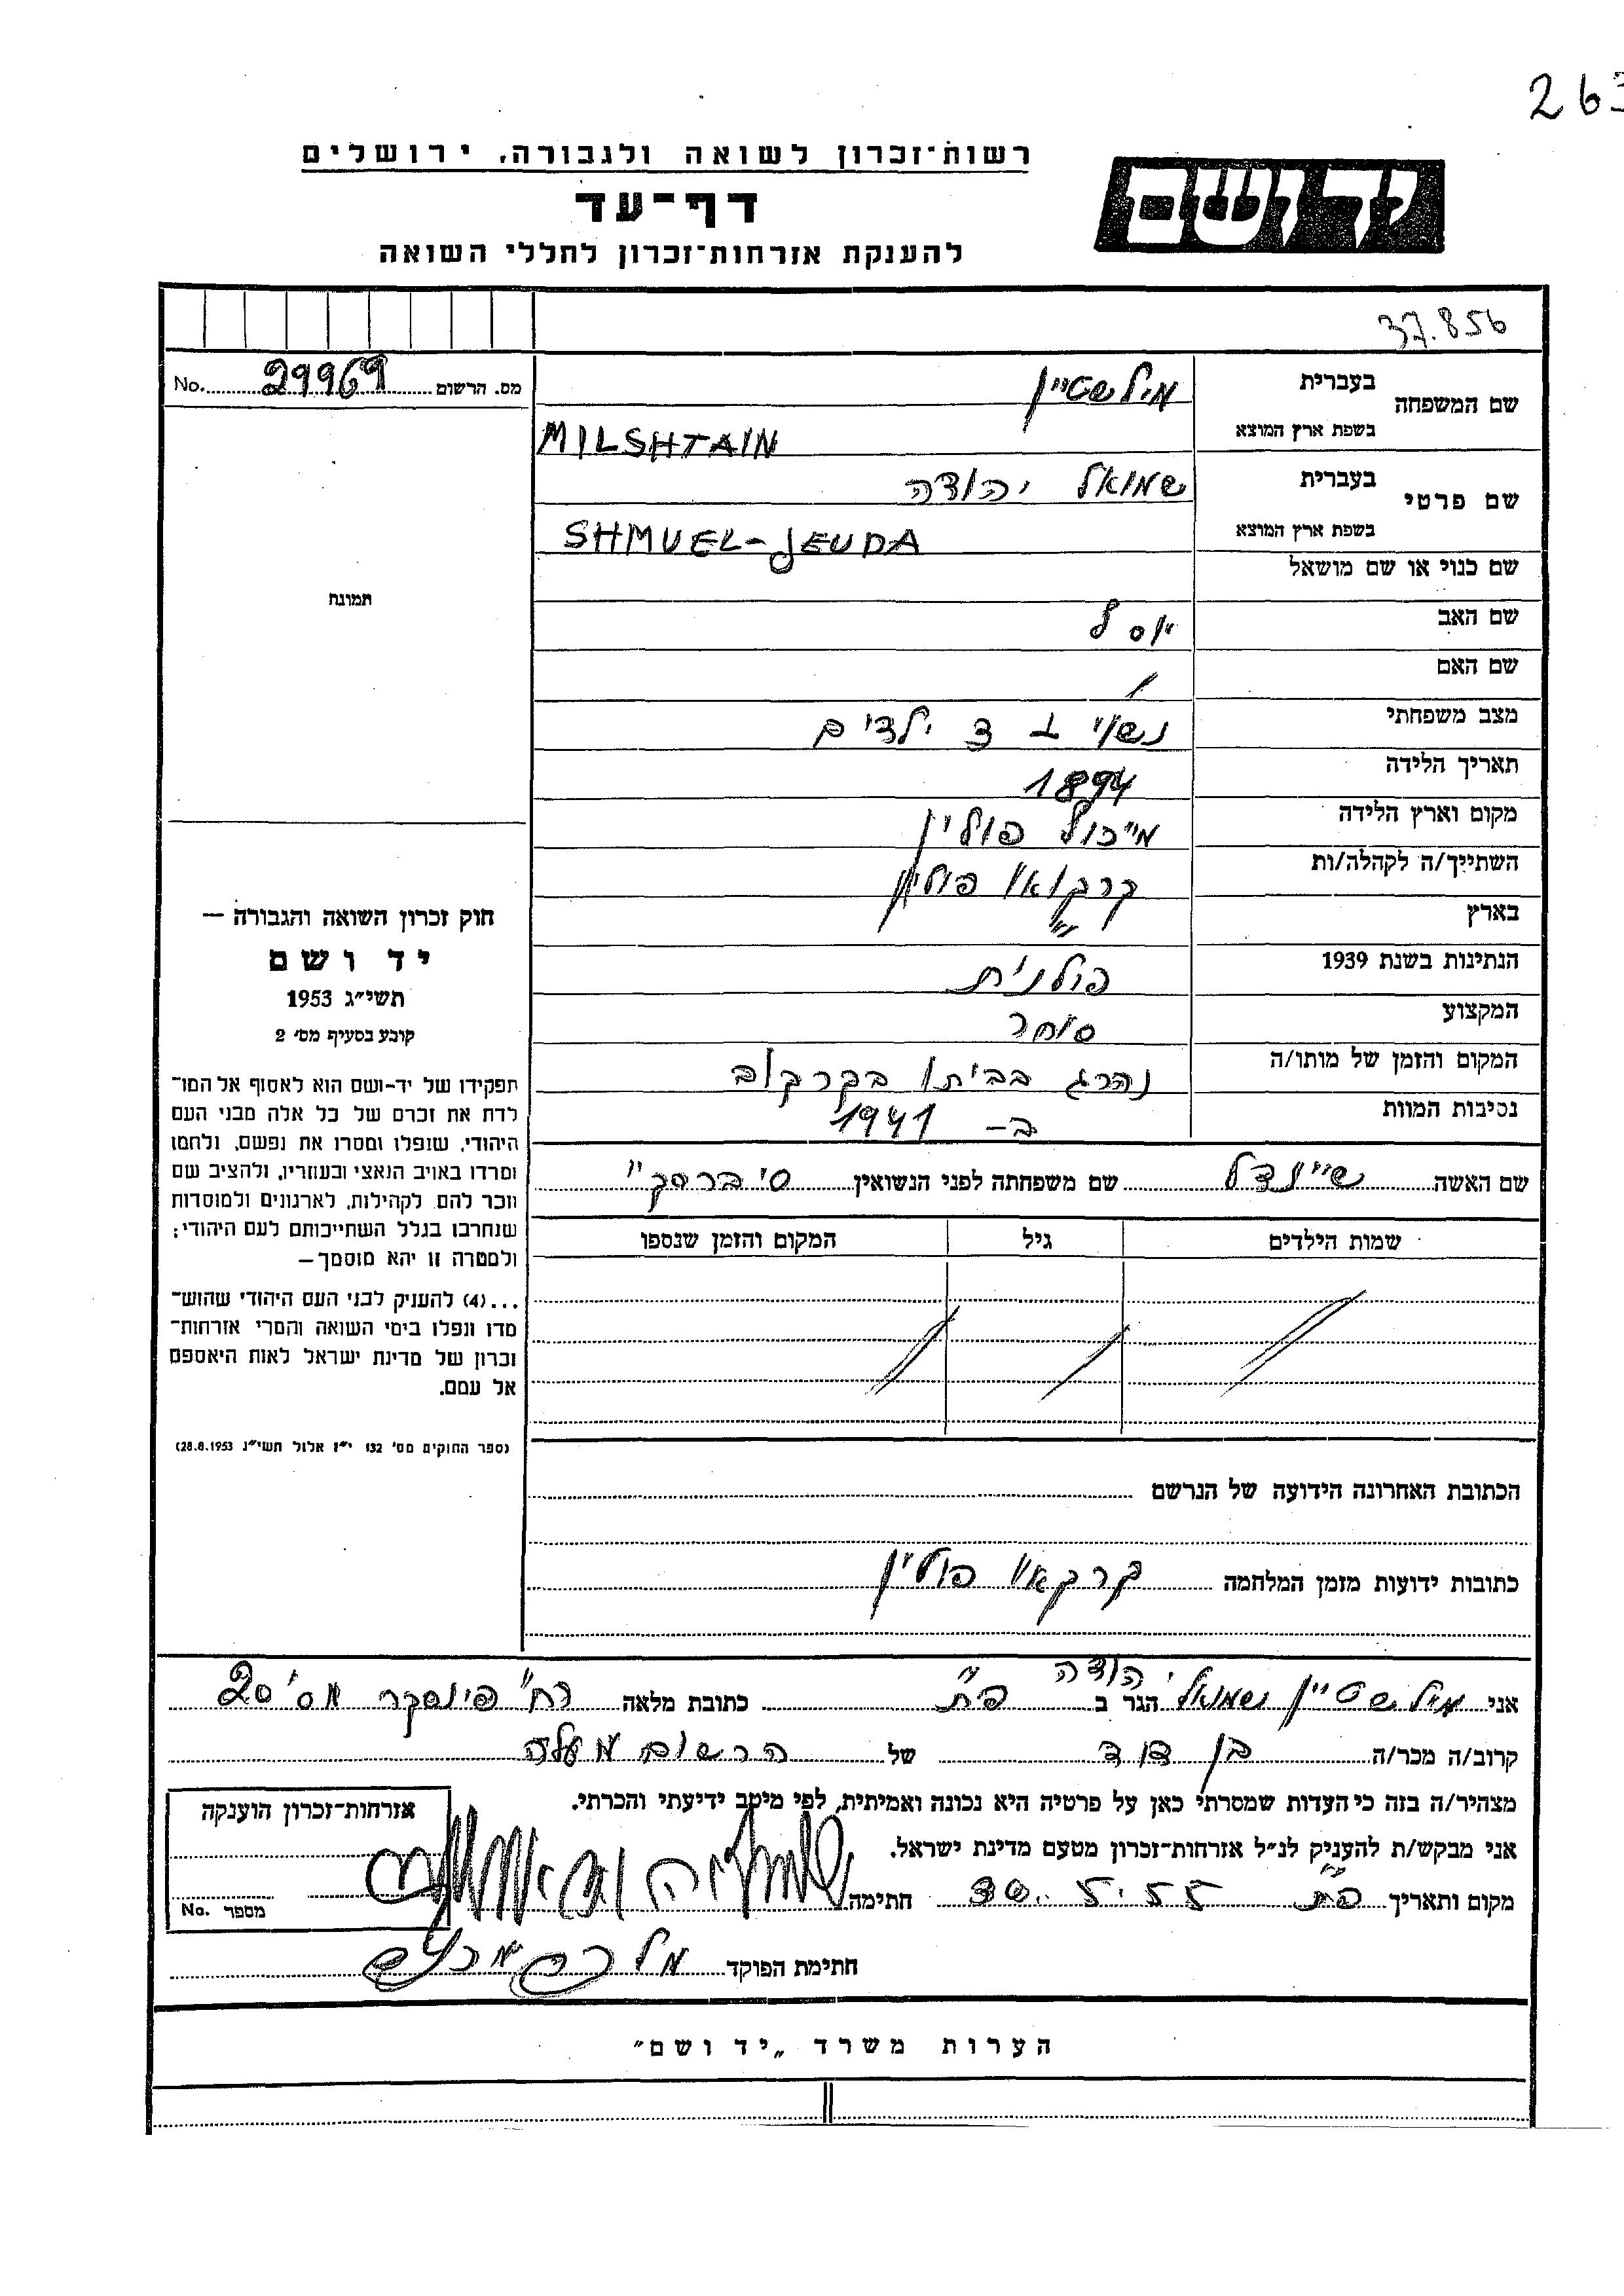 263
רשות־זכרון לשואה ולגבורה, ירושלים
יד ושם
דף־עד
להענקת אזרחות־זכרון לחללי השואה
37.856
מס. הרשום 29969 No.
שם המשפחה בעברית מילשטיין
בשפת ארץ המוצא MILSHTAIN
שם פרטי בעברית שמואל יהודה
בשפת ארץ המוצא SHMUEL-JEUDA
שם כנוי או שם מושאל
תמונה
שם האב יוסל
שם האם /
מצב משפחתי נשוי + 3 ילדים
תאריך הלידה 1894
מקום וארץ הלידה מייכול פולין
השתייך/ה לקהלה/ות קרקואו פולין
בארץ "
הנתינות בשנת 1939 פולנית
המקצוע סוחר
המקום והזמן של מותו/ה נהרג בביתו בקרקוב
נסיבות המוות ב- 1941
שם האשה שיינדל שם משפחתה לפני הנשואין סיברסקי
שמות הילדים גיל המקום והזמן שנספו
חוק זכרון השואה והגבורה —
יד ושם
תשי״ג 1953
קובע בסעיף מס׳ 2
תפקידו של יד-ושם הוא לאסוף אל המו־
לדת את זכרם של כל אלה מבני העם
היהודי, שנפלו ומסרו את נפשם, נלחמו
ומרדו באויב הנאצי ובעוזריו, ולהציב שם
וזכר להם לקהילות, לארגונים ולמוסדות
שנחרבו בגלל השתייכותם לעם היהודי;
ולמטרה זו יהא מוסמך—
...(4) להעניק לבני העם היהודי שהוש־
מדו ונפלו בימי השואה והמרי אזרחות־
זכרון של מדינת ישראל לאות היאספם
אל עמם.
(ספר החוקים מס׳ 132 י״ז אלול תשי״ג 28.8.1953)
הכתובת האחרונה הידועה של הנרשם
כתובות ידועות מזמן המלחמה קרקאוו פולין
אני מילשטיין שמואל יהודה הגר ב פ״ת כתובת מלאה רח׳ פינסקר מס׳ 20
קרוב/ה מכר/ה בן דוד של הרשום מעלה
מצהיר/ה בזה כי העדות שמסרתי כאן על פרטיה היא נכונה ואמיתית, לפי מיטב ידיעתי והכרתי.
אני מבקש/ת להעניק לנ״ל אזרחות־זכרון מטעם מדינת ישראל.
מקום ותאריך פ״ת 30.5.55 חתימה
אזרחות־זכרון הוענקה
מספר No.
חתימת הפוקד
הערות משרד „יד ושם״